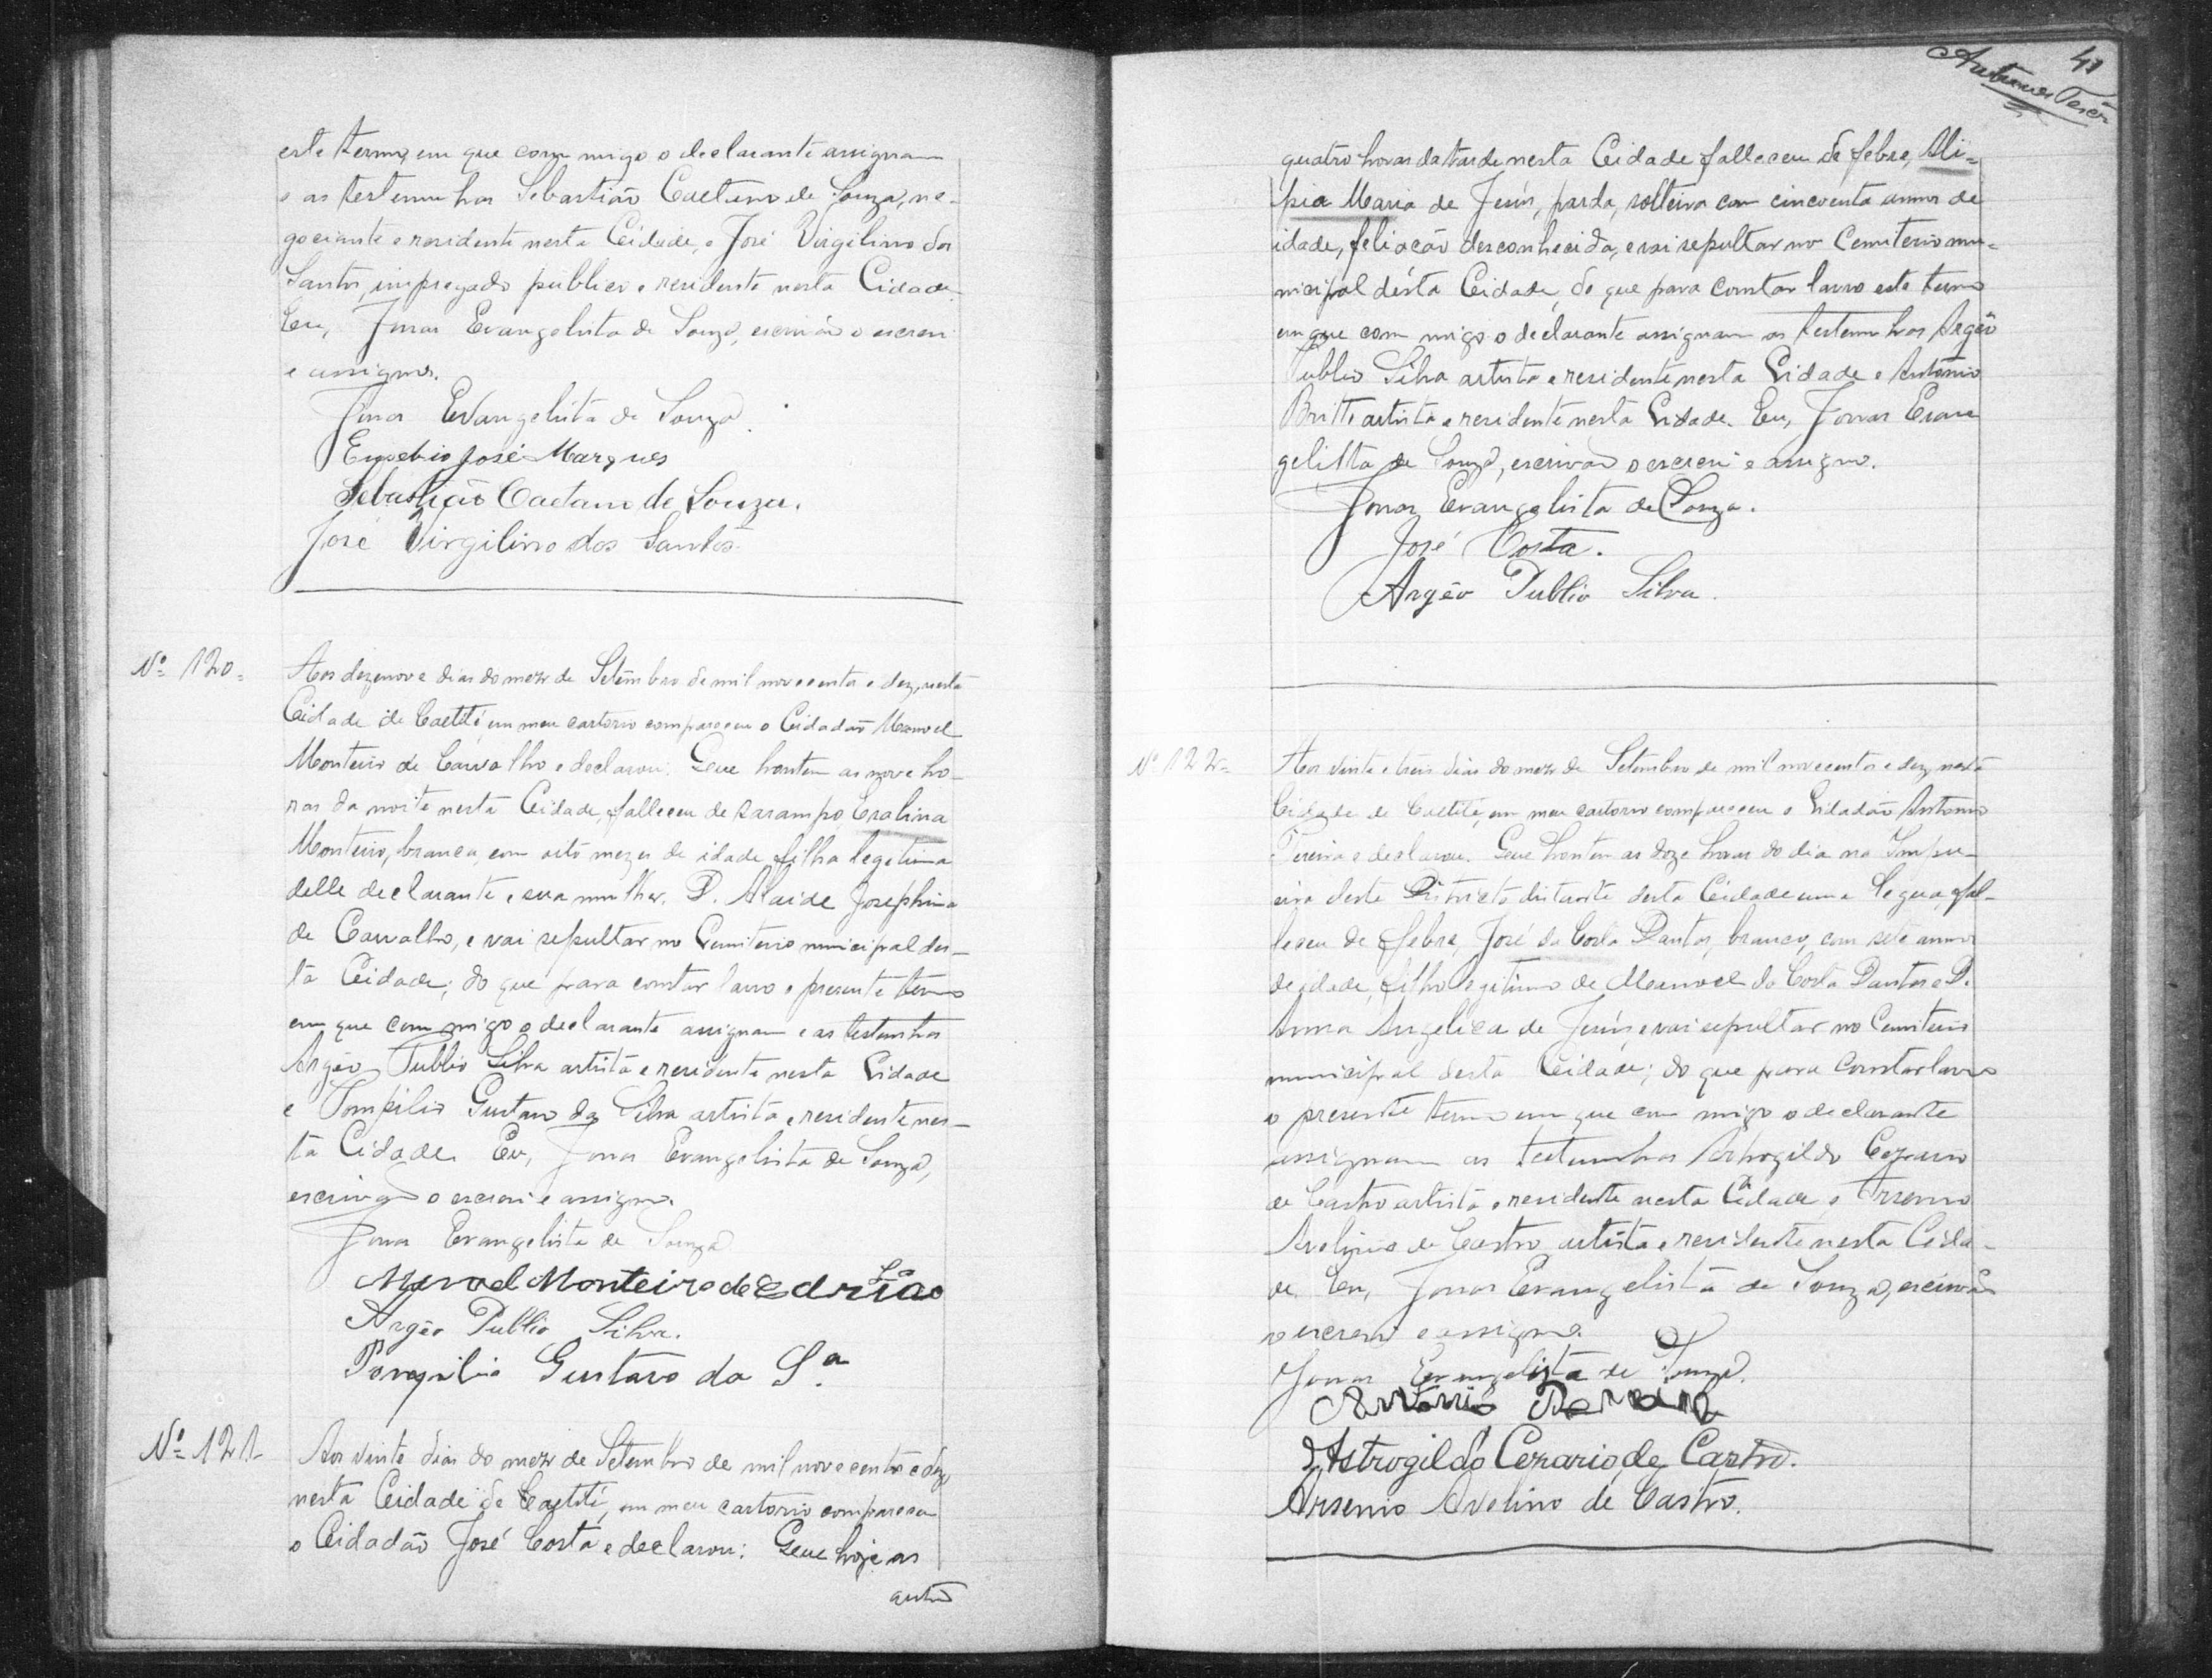 este termo, em que com migo o declarante assignam
e as testemunhas Sebastião Caetano de Souza, ne-
gociante e residente nesta Cidade, e José Virgilino dos
Santos, impregado publico e residente nesta Cidade.
Eu, Jonas Evangelista de Souza, escrivão o escrevi
e assigno.
Jonas Evangelista de Souza.
Eusebio José Marques
Sebastião Caetano de Souza.
José Virgilino dos Santos.
Nº 120=
Aos dezenove dias do mez de Setembro de mil novecentos e dez, nesta
Cidade de Caetité, em meu cartorio compareceu o Cidadão Manoel
Monteiro de Carvalho e declarou: Que hontem as nove ho-
ras da noite nesta Cidade, falleceu de sarampo, Eralina
Monteiro, branca, com oito mezes de idade, filha legitima
delle declarante, e sua mulher, D. Alaide Josephina
de Carvalho, e vai sepultar no Cemiterio municipal des-
ta Cidade; do que para constar lavro o presente termo
em que com migo o declarante assignam e as testemunhas
Argêo Publio Silva artista e residente nesta Cidade
e Pompilio Gustavo da Silva artista, e residente nes-
ta Cidade. Eu, Jonas Evangelista de Souza,
escrivão o escrevi e assigno.
Jonas Evangelista de Souza
Manoel Monteiro de
Argêo Publio Silva.
Pompilio Gustavo da Sª
Nº 121-
Aos vinte dias do mez de Setembro de mil novecentos e dez,
nesta Cidade de Caetité, em meu cartorio compareceu
o Cidadão José Costa e declarou: Que hoje as
quatro
41
quatro horas da tarde nesta Cidade falleceu de febre, Ali-
pia Maria de Jesús, parda, solteira com cincoenta annos de
idade, feliação desconhecida, e vai sepultar no Cemiterio mu-
nicipal désta Cidade, do que para constar lavro este termo
em que com migo o declarante assignam as testemunhas Argêo
Publio Silva artista e residente nesta Cidade e Antonio
Britto artista e residente nesta Cidade. Eu, Jonas Evan
gelista de Souza, escrivão o escrevi e assigno.
Jonas Evangelista de Souza.
José Costa.
Argêo Publio Silva.
Nº 122=
Aos vinte e treis dias do mez de Setembro de mil novecentos e dez, nesta
Cidade de Caetité, em meu cartorio compareceu o Cidadão Antonio
Pereira e declarou: Que hontem as doze horas do dia na
deste Districto distante desta Cidade uma legua, fal-
leceu de febre, José da Costa Dantas, branco, com sete annos
de idade, filho legitimo de Manoel da Costa Dantas e D.
Anna Angelica de Jesús, e vai sepultar no Cemiterio
municipal desta Cidade; do que para constar lavro
o presente termo em que com migo o declarante
assignam as testemunhas Astrogildo Cezario
de Castro artista e residente nesta Cidade e Arsenio
Avelino de Castro artista e residente nesta Cida-
de. Eu, Jonas Evangelista de Souza, escrivão
o escrevi e assigno.
Jonas Evangelista de Souza.
Antonio
Astrogildo Cezario de Castro.
Arsenio Avelino de Castro.